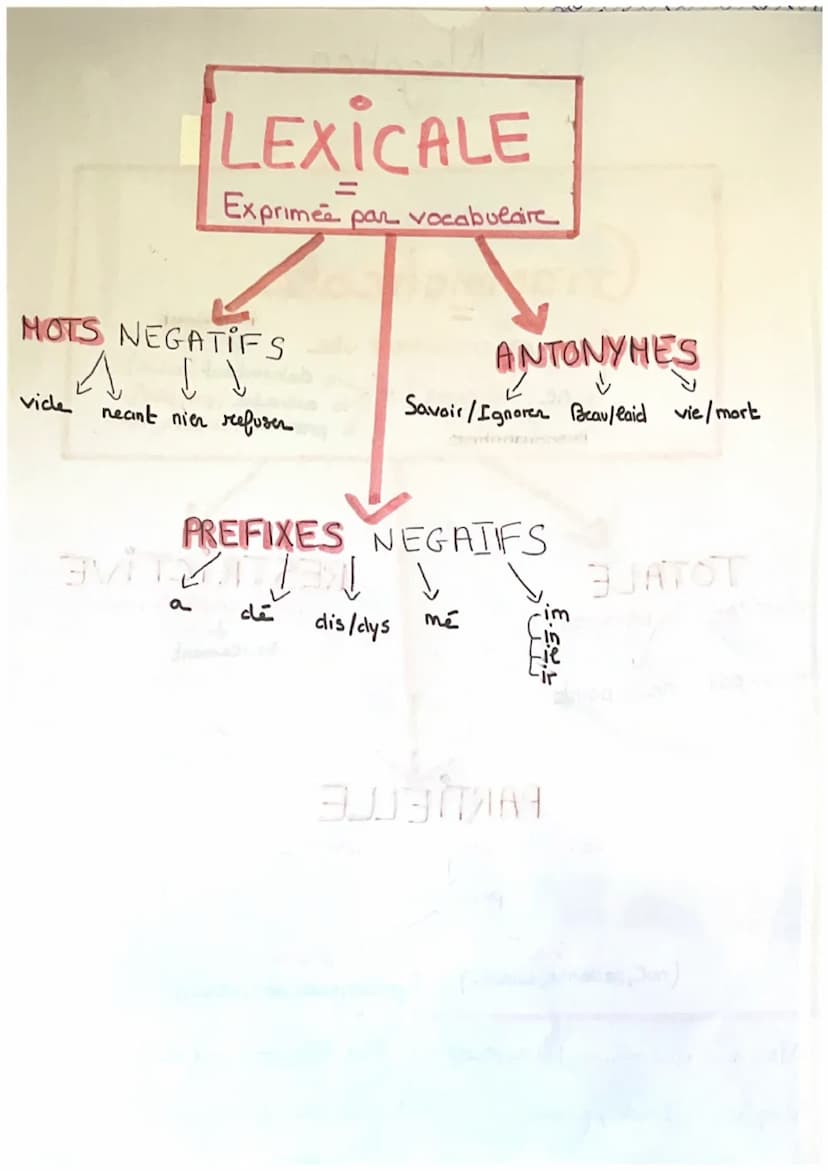 LEXICALE
=
Exprimée par vocabulaire
MOTS NEGATIFS
vide neant nier refuser
ANTONYMES
Savoir/Ignorer Beau/laid vie/mort
PREFIXES NEGATIFS
a dé dis/dys mé
im
in
il
ir
TOTALE
RESTRICTIVE
PARTIELLE